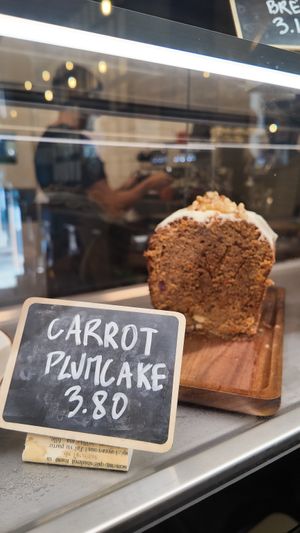 BRE
3.
CARROT
PLUMCAKE
3.80